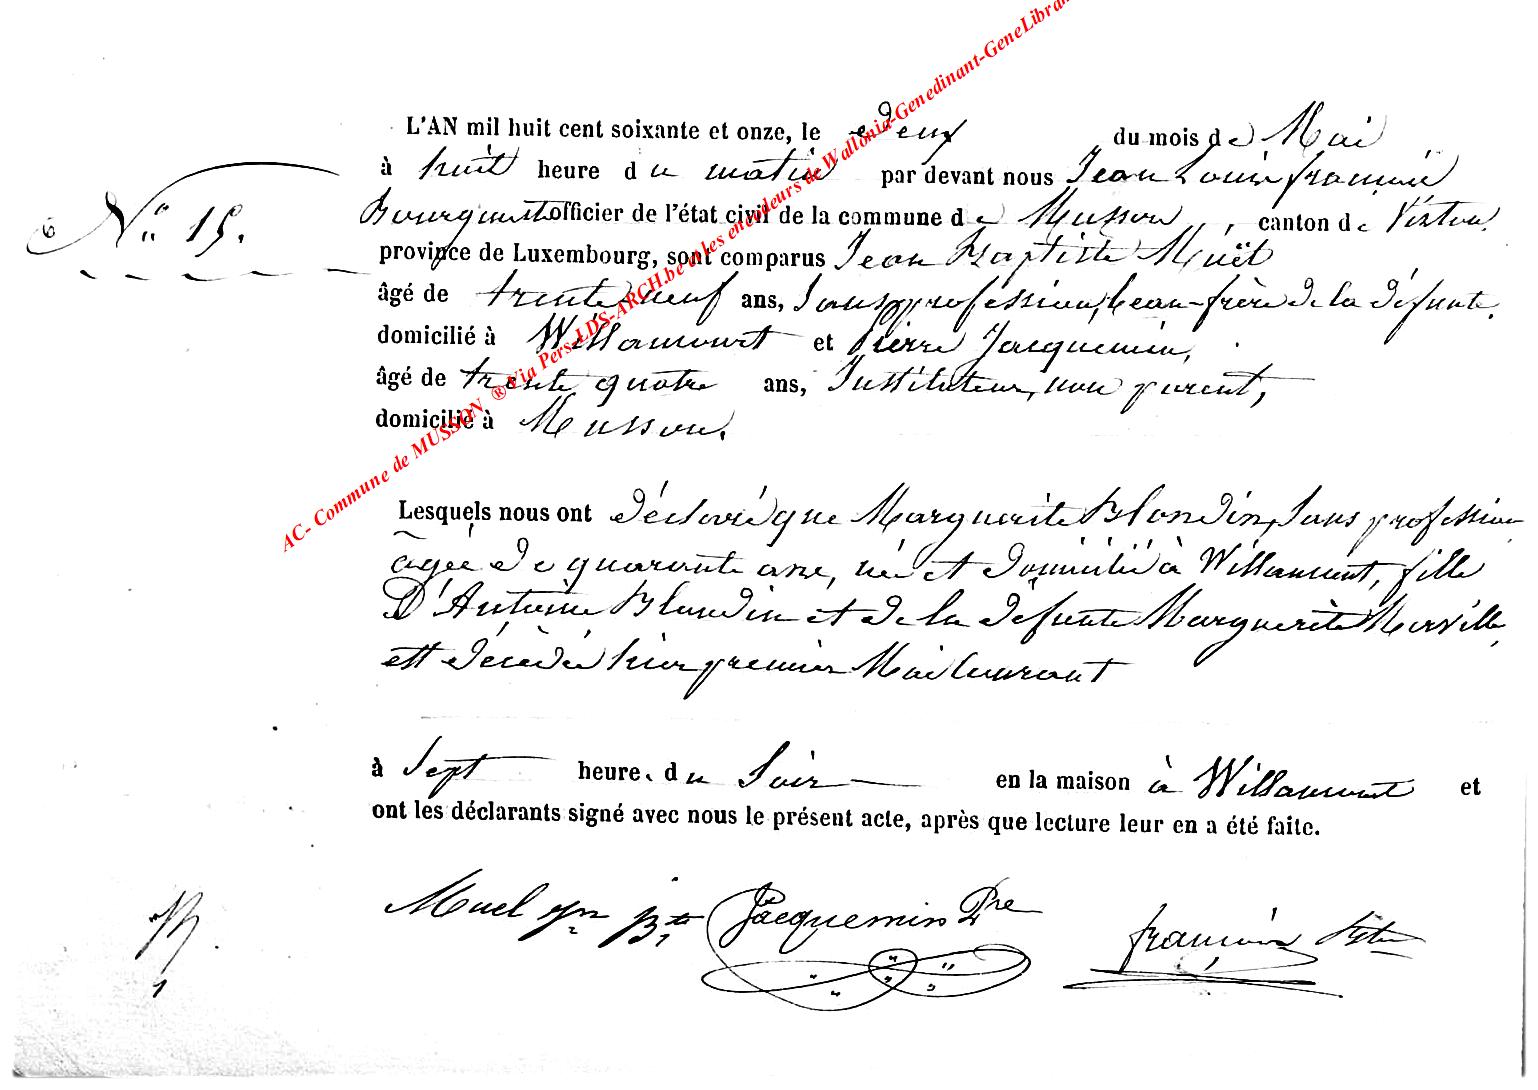 L'AN mil huit cent soixante et onze, le deux du mois de Mai
à huit heure du matin par devant nous Jean Louis françois
Bourguet officier de l'état civil de la commune de Musson, canton de Virton,
province de Luxembourg, sont comparus Jean Baptiste Muël
âgé de trente neuf ans, Sans profession, beau-frère de la défunte,
domicilié à Willancourt et Pierre Jacquemin,
âgé de trente quatre ans, Instituteur, non parent,
domicilié à Musson.
N° 15.
Lesquels nous ont déclaré que Marguerite Blondin, Sans profession
âgée de quarante ans, née et domiciliée à Willancourt, fille
D'Antoine Blondin et de la défunte Marguerite Merville,
est décédée hier premier Mai Courant
à Sept heure du Soir en la maison à Willancourt et
ont les déclarants signé avec nous le présent acte, après que lecture leur en a été faite.
Muel Jn Bte Jacquemin Pre françois
AC- Commune de MUSSON ® Via Pers-LDS-ARCH.be et les encodeurs de Wallonia-Genedinant-GeneLibra